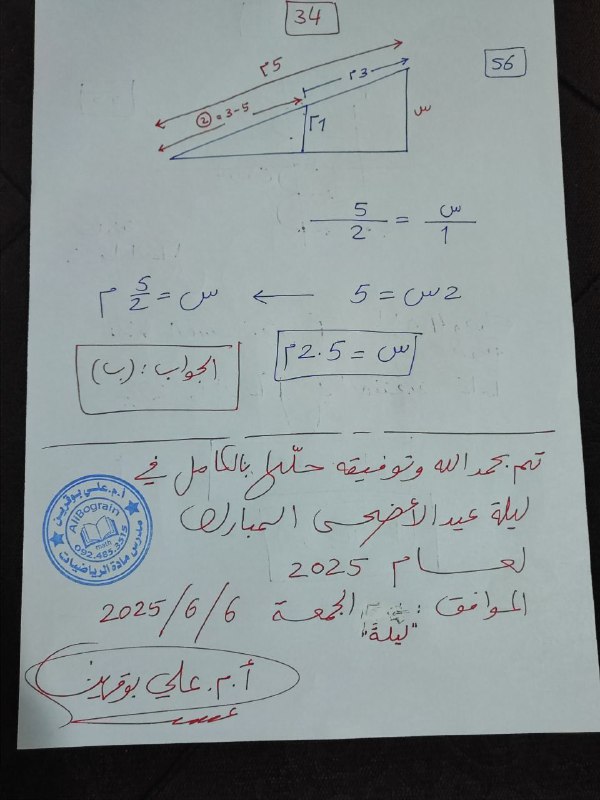 34
56
5م
3م
5-3=②
1م
س
س/1 = 5/2
2س = 5 ← س = 5/2 م
س = 2.5م
الجواب: (ب)
تم بحمد الله وتوفيقه حلّها بالكامل في
ليلة عيد الأضحى المبارك
لعام 2025
الموافق: الجمعة 2025/6/6
"ليلة"
أ.م. علي بوقرين
أ.م. علي بوقرين
AliBograin
math
092.485.3515
مدرس مادة الرياضيات